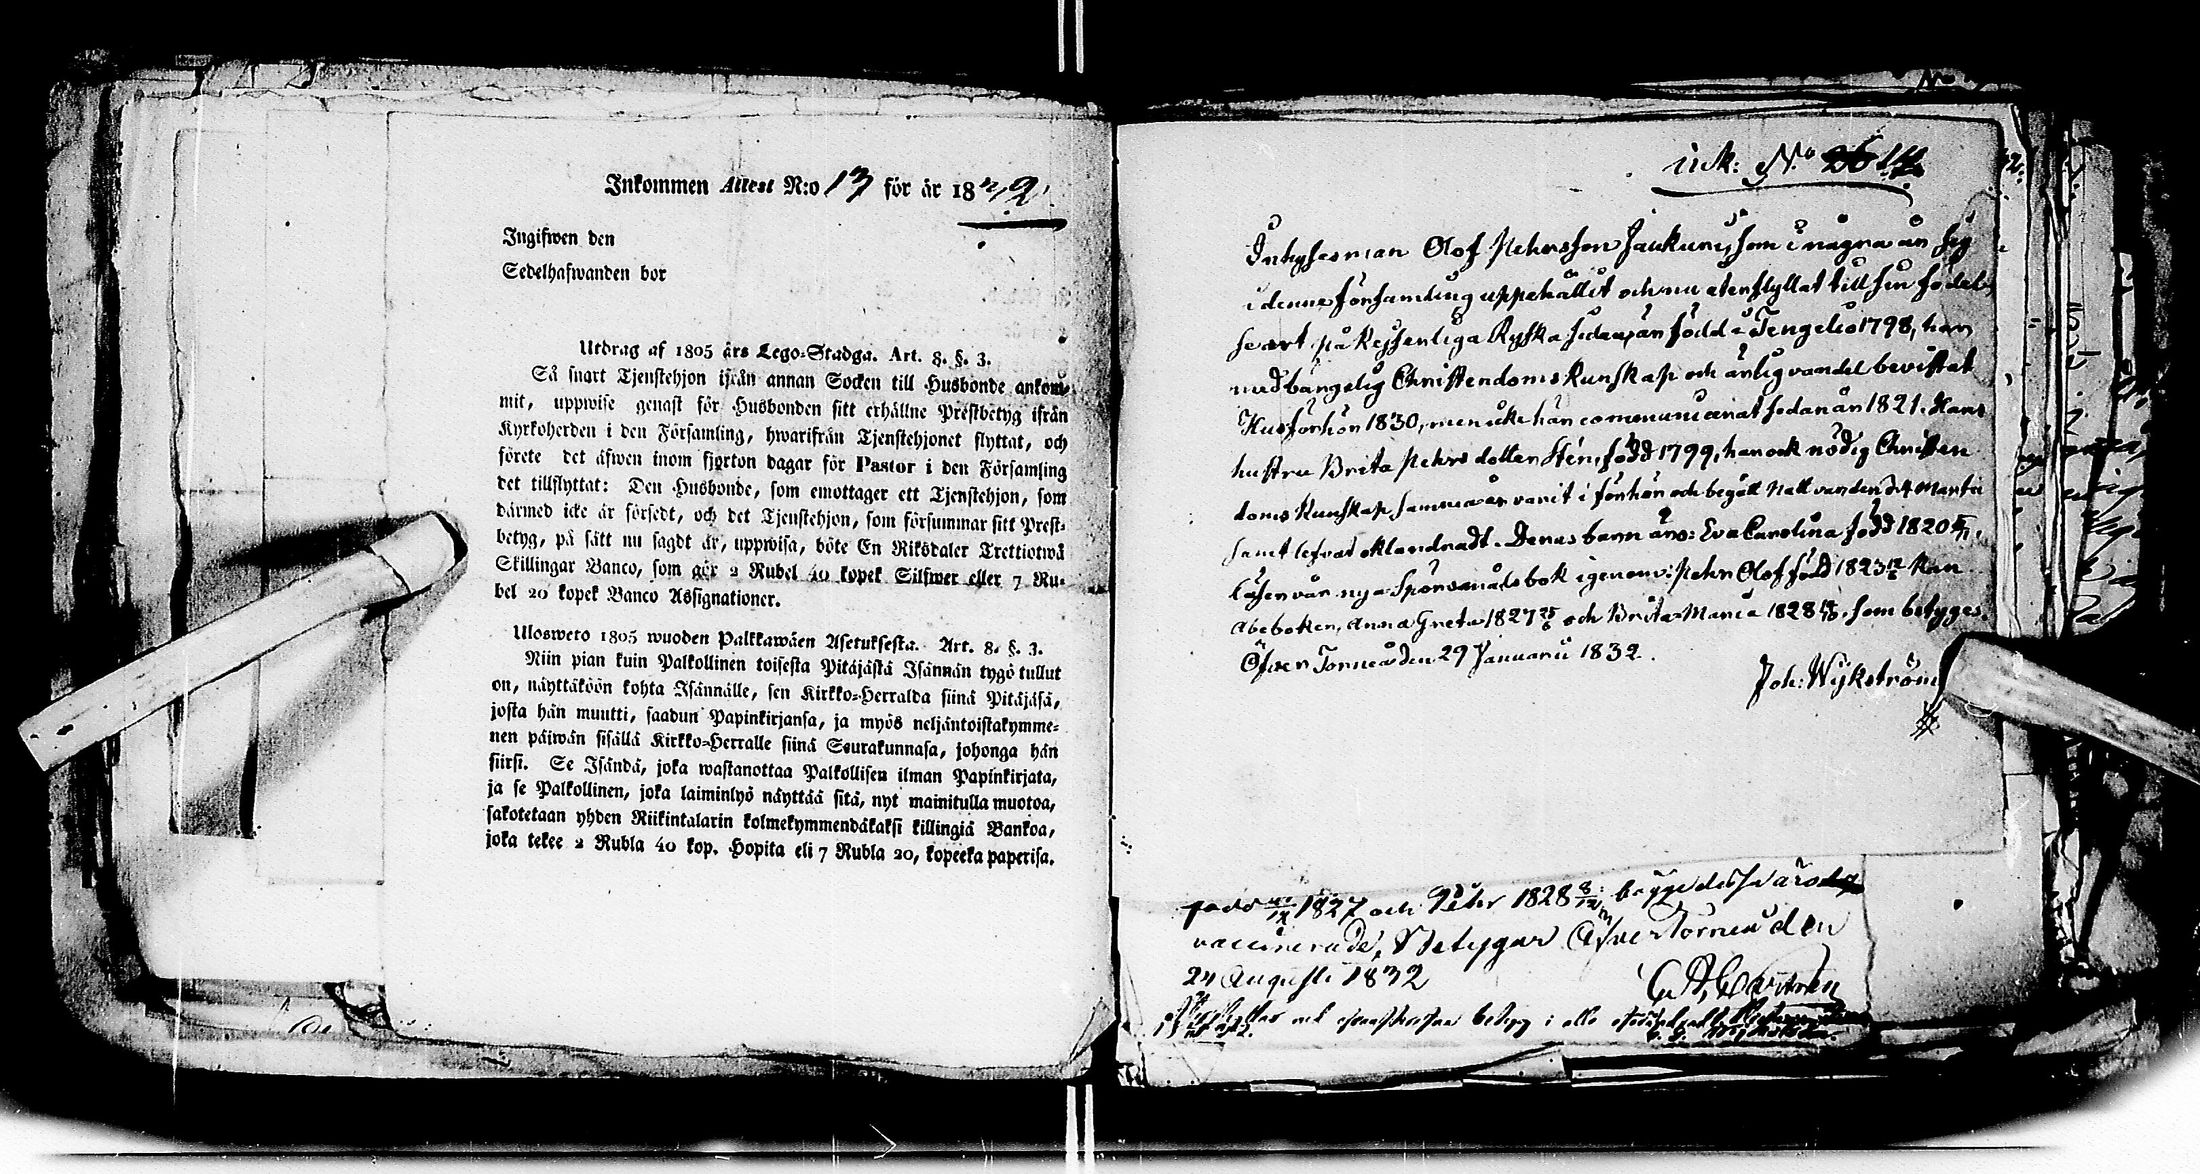 Inkommen Attest N:o 13 för år 1832.
Ingifwen den
Sedelhafwanden bor
Utdrag af 1805 års Lego-Stadga. Art. 8. §. 3.
Så snart Tjenstehjon ifrån annan Socken till Husbonde ankom-
mit, uppwise genast för Husbonden sitt erhållne Prestbetyg ifrån
Kyrkoherden i den Församling, hwarifrån Tjenstehjonet flyttat, och
förete det äfwen inom fjorton dagar för Pastor i den Församling
det tillflyttat: Den Husbonde, som emottager ett Tjenstehjon, som
därmed icke är försedt, och det Tjenstehjon, som försummar sitt Prest-
betyg, på sätt nu sagdt är, uppwisa, böte En Riksdaler Trettiotwå
Skillingar Banco, som gör 2 Rubel 40 kopek Silfwer eller 7 Ru-
bel 20 kopek Banco Assignationer.
Ulosweto 1805 wuoden Palkkawäen Asetuksesta. Art. 8. §. 3.
Niin pian kuin Palkollinen toisesta Pitäjästä Isännän tygö tullut
on, näyttäköön kohta Isännälle, sen Kirkko-Herralda siinä Pitäjäsä,
josta hän muutti, saadun Papinkirjansa, ja myös neljäntoistakymme-
nen päiwän sisällä Kirkko-Herralle siinä Seurakunnasa, johonga hän
siirsi. Se Isändä, joka wastanottaa Palkollisen ilman Papinkirjata,
ja se Palkollinen, joka laiminlyö näyttää sitä, nyt mainitulla muotoa,
sakotetaan yhden Riikintalarin kolmekymmendäkaksi killingiä Bankoa,
joka tekee 2 Rubla 40 kop. Hopita eli 7 Rubla 20, kopeeka paperisa.
ink: No
Inhysesman Olof Pehrsson som i några år sig
i denna församling uppehållit och nu återflyttat till sin födel-
seort på Ryska sidan, är född i Tengeliö 1798, har
nödtorftelig Christendoms Kunskap och ärlig vandel bevistat
Husförhör 1830, men icke här communicerat sedan år 1821. Hans
hustru Brita Pehrsdotter född 1799, har ock nödig Christen
doms Kunskap samma år varit i förhör och begått Nattvarden d. 4 Martii
samt lefvat oklandradt. Deras barn äro: Eva Carolina född 1820
läser vår nya Spörsmålsbok igenom: Pehr Olof född 1823 kan
Abeboken, Anna Greta 1827 25/6 och Brita Maria 1828 som betygas.
Öfver Torneå den 29 Januarii 1832.
Joh: Wijkström
född 1827 och Pehr 1828 8/12, begge dessa äro
vaccinerade, Betygar Öfver Torneå den
24 Augusti 1832
betyg i alla